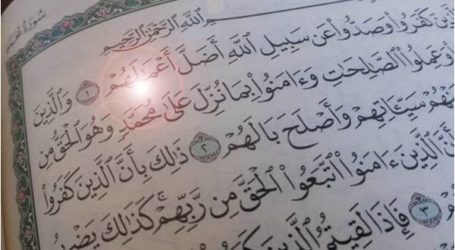 سُورَةُ مُحَمَّدٍ
بِسْمِ اللَّهِ الرَّحْمَٰنِ الرَّحِيمِ
الَّذِينَ كَفَرُوا وَصَدُّوا عَن سَبِيلِ اللَّهِ أَضَلَّ أَعْمَالَهُمْ ١ وَالَّذِينَ
ءَامَنُوا وَعَمِلُوا الصَّالِحَاتِ وَءَامَنُوا بِمَا نُزِّلَ عَلَى مُحَمَّدٍ وَهُوَ الْحَقُّ مِن
عَنْهُمْ سَيِّئَاتِهِمْ وَأَصْلَحَ بَالَهُمْ ٢ ذَلِكَ بِأَنَّ الَّذِينَ كَفَرُوا
وَأَنَّ الَّذِينَ ءَامَنُوا اتَّبَعُوا الْحَقَّ مِن رَّبِّهِمْ كَذَلِكَ يَضْرِبُ
٣ فَإِذَا لَقِيتُمُ الَّذِينَ كَفَرُوا